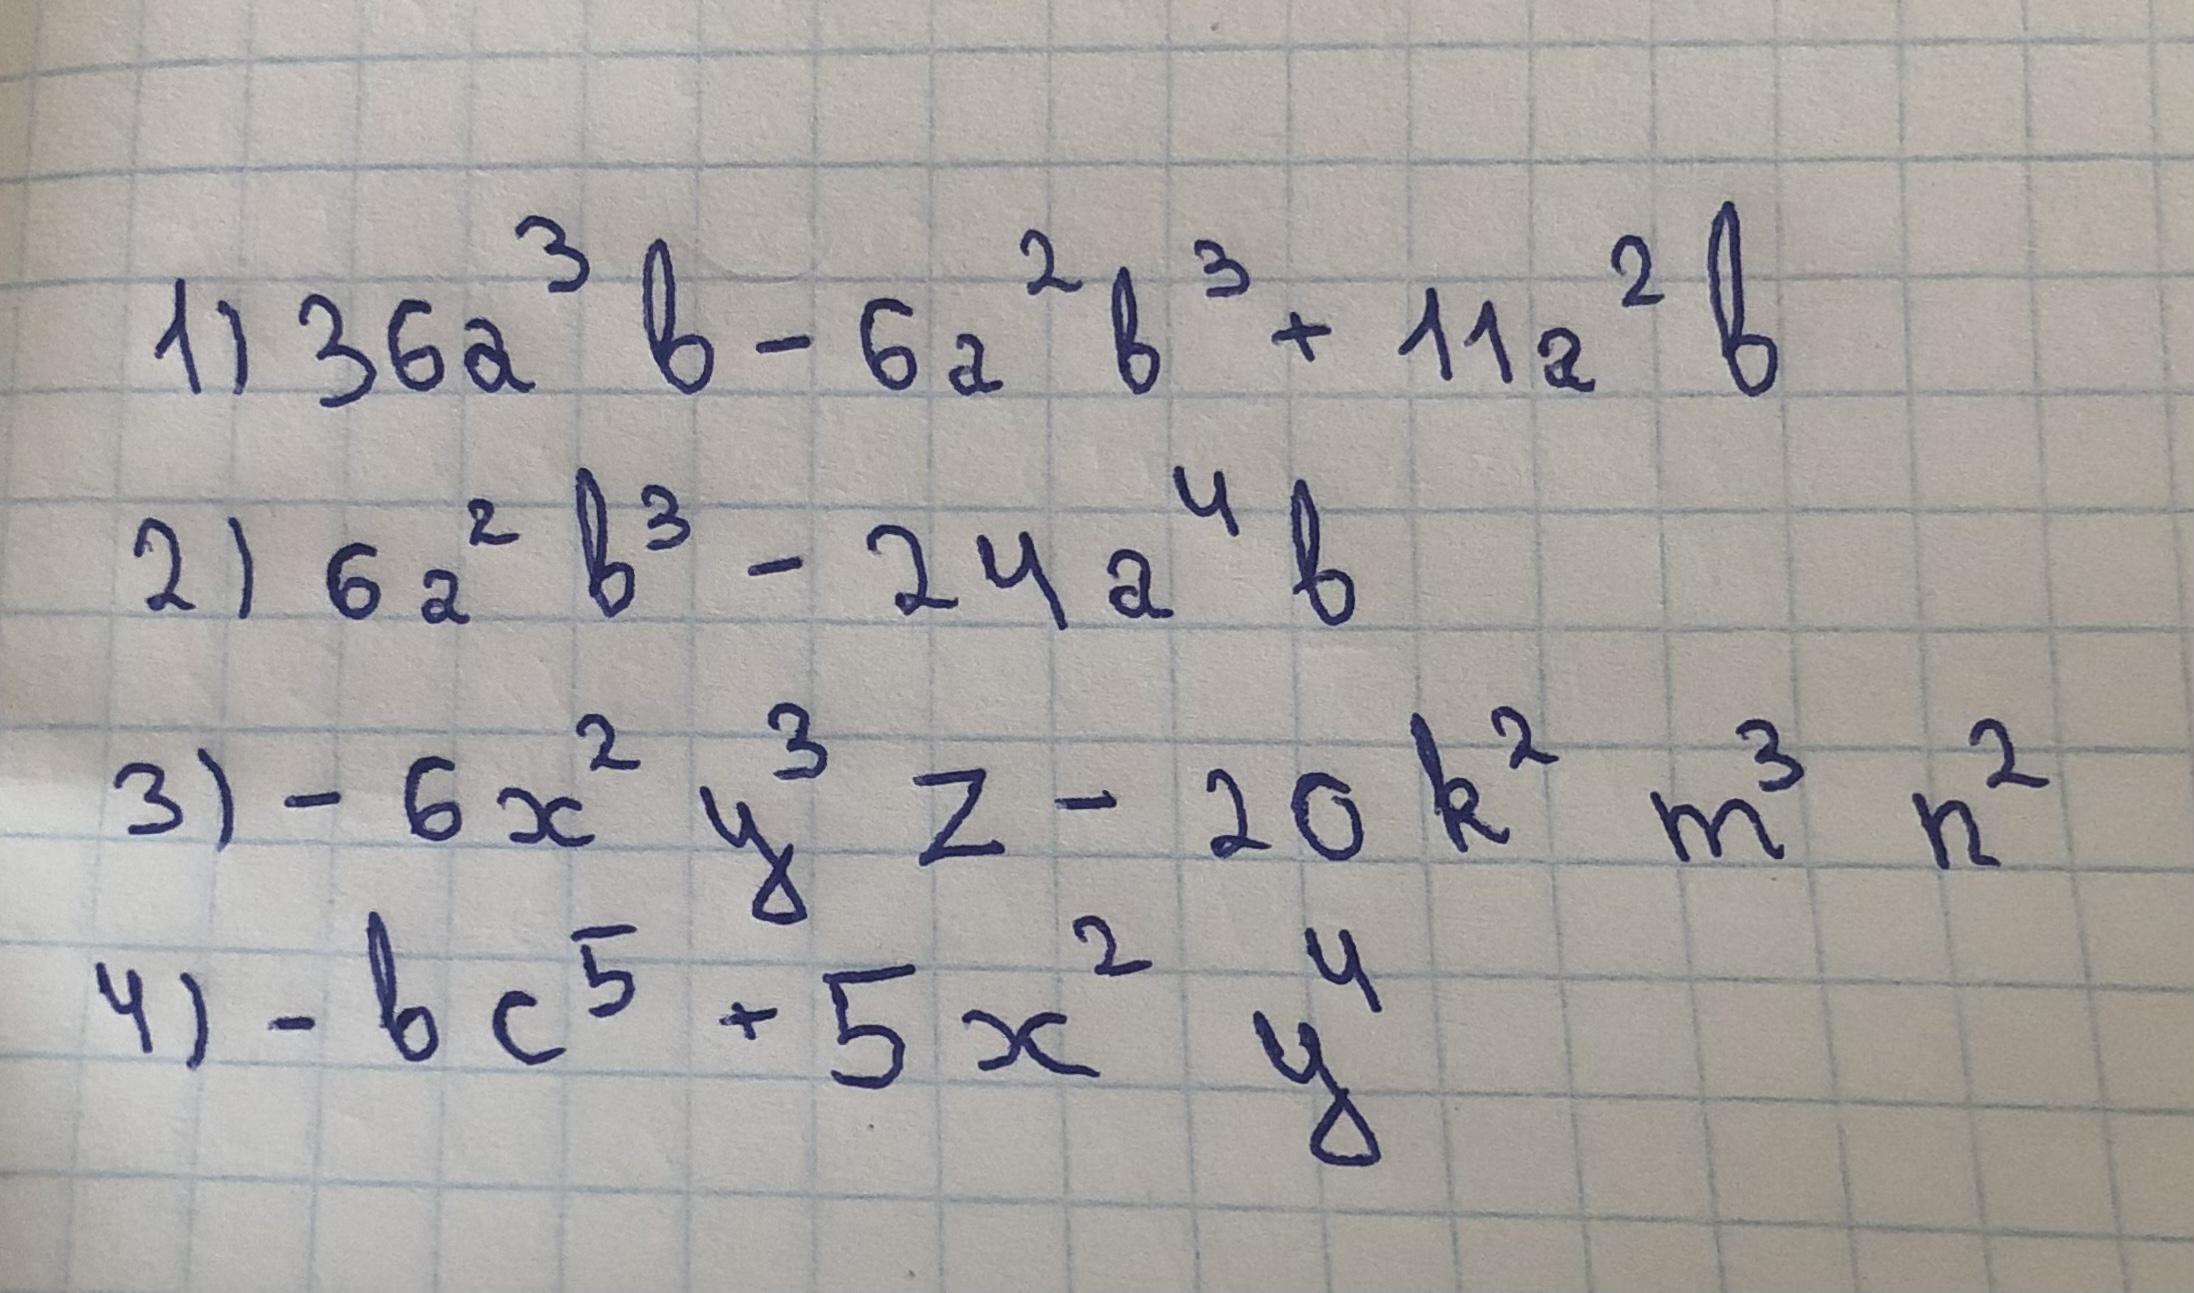 1) 36a³b - 6a²b³ + 11a²b
2) 6a²b³ - 24a⁴b
3) - 6x²y³z - 20k²m³n²
4) - bc⁵ + 5x²y⁴